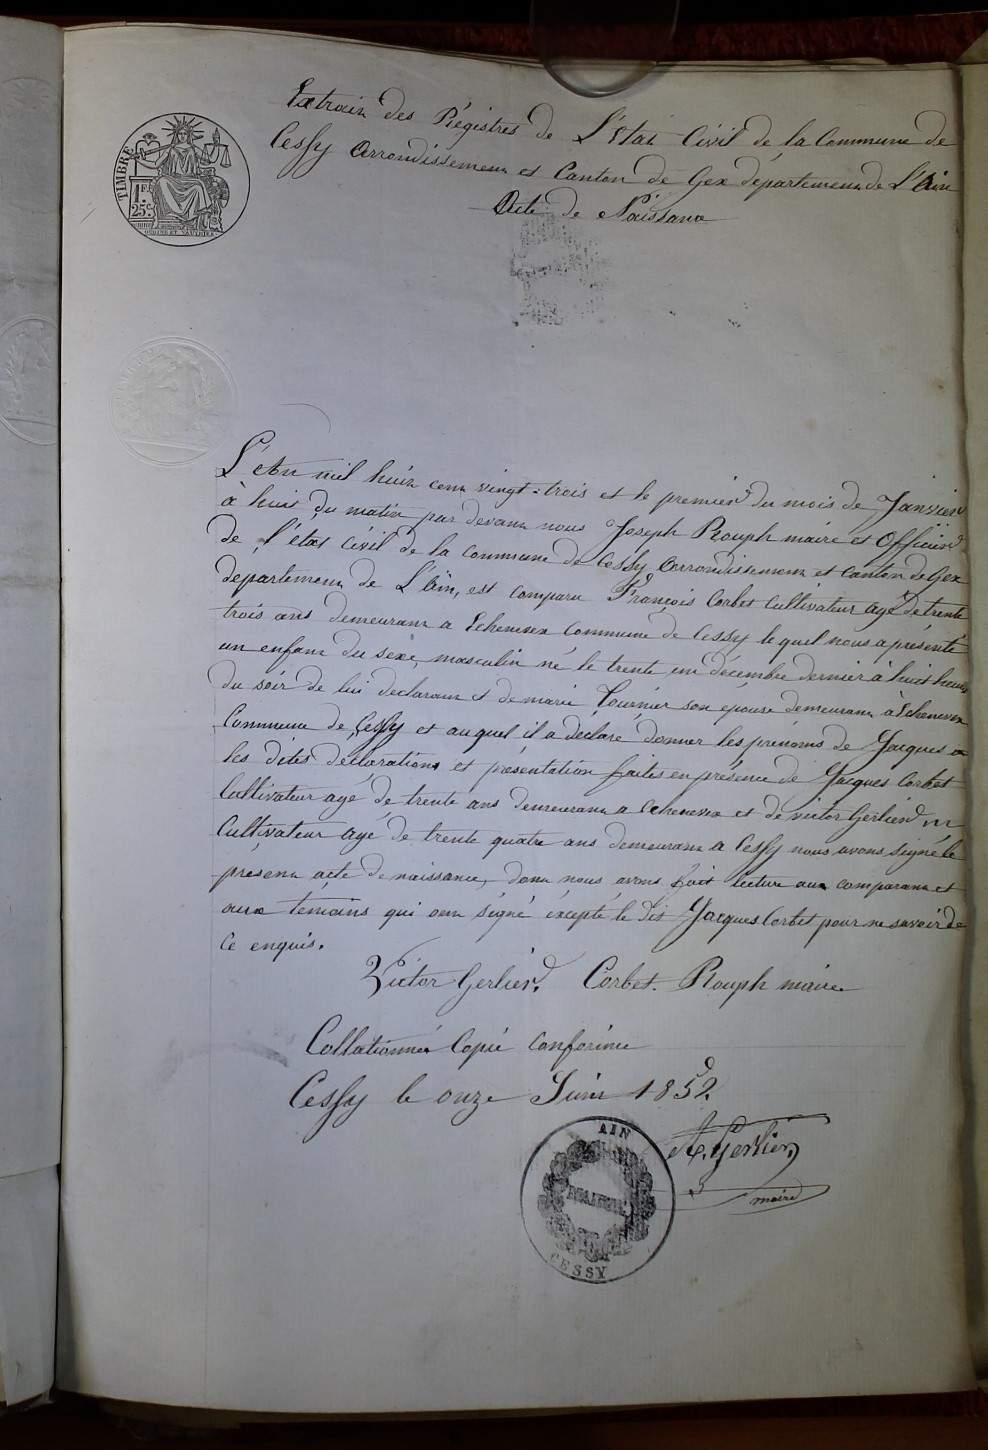 Extrait des Régistres de L'Etat Civil de la Commune de
Cessy Arrondissement et Canton de Gex département de L'Ain
Acte de Naissance
TIMBRE
1F.
25c.
L'An mil huit cent vingt-trois et le premier du mois de Janvier
à huit du matin par devant nous Joseph Rouph maire et Officier
de l'état Civil de la commune de Cessy Arrondissement et Canton de Gex
departement de L'Ain, est comparu François Corbet Cultivateur agé de trente
trois ans demeurant a Echenevex Commune de Cessy le quel nous a présenté
un enfant du sexe masculin né le trente un décembre dernier à huit heures
du soir de lui déclarant et de marie Tournier son epouse demeurant à Echenevex
Commune de Cessy et auquel il a declaré donner les prénoms de Jacques
les dites déclarations et présentation faites en présence de Jacques Corbet
Cultivateur agé de trente ans demeurant a echenevex et de victor Gerlier
Cultivateur agé de trente quatre ans demeurant a Cessy nous avons signé le
présent acte de naissance, dont nous avons fait lecture aux comparant et
aux temoins qui ont signé éxcepté le dit Jacques Corbet pour ne savoir de
ce enquis.
Victor Gerlier. Corbet. Rouph maire
Collationné Copié Conforme
Cessy le onze Juin 1852
A. Gerlier
maire
AIN
MAIRIE
CESSY